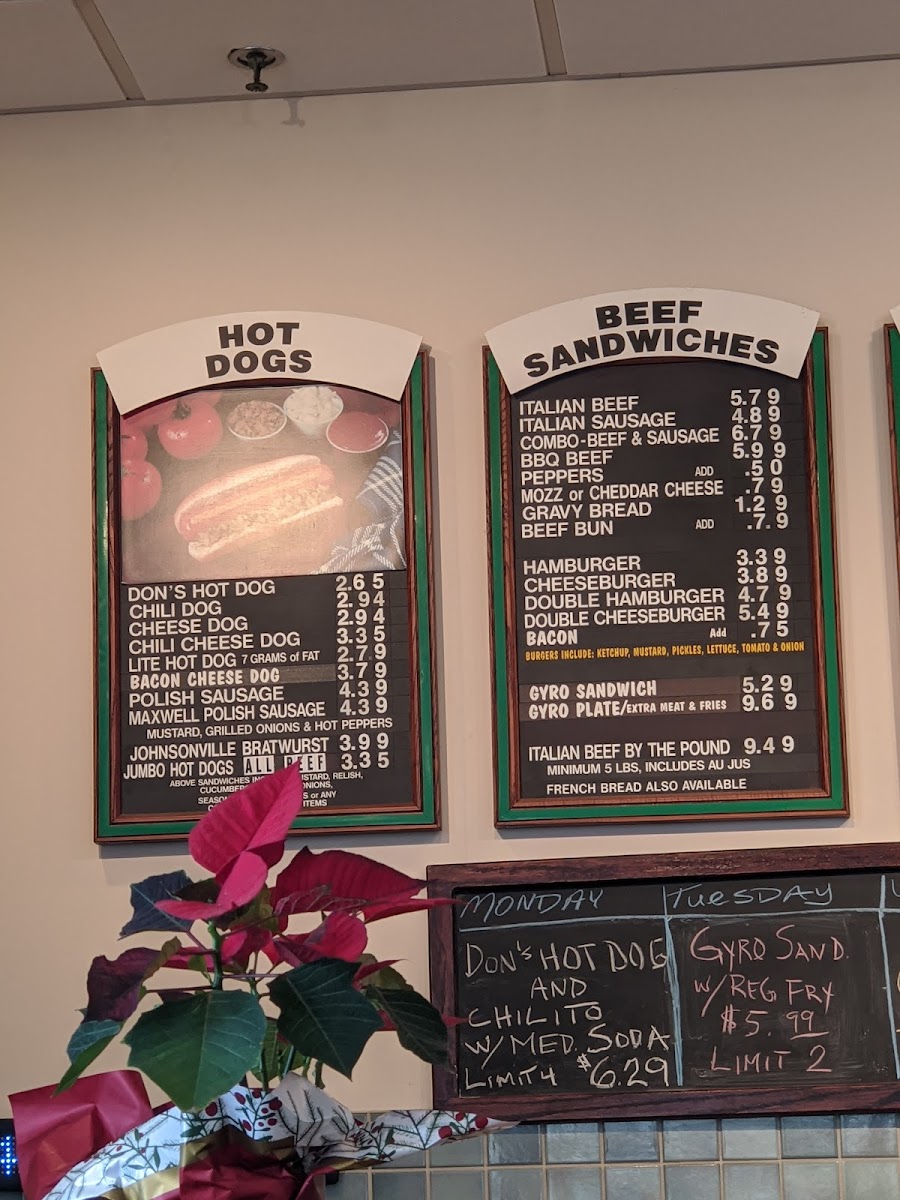 HOT
DOGS
DON'S HOT DOG 2.65
CHILI DOG 2.94
CHEESE DOG 2.94
CHILI CHEESE DOG 3.35
LITE HOT DOG 7 GRAMS of FAT 2.79
BACON CHEESE DOG 3.79
POLISH SAUSAGE 4.39
MAXWELL POLISH SAUSAGE 4.39
MUSTARD, GRILLED ONIONS & HOT PEPPERS
JOHNSONVILLE BRATWURST 3.99
JUMBO HOT DOGS ALL BEEF 3.35
ABOVE SANDWICHES MUSTARD, RELISH,
or ANY
ITEMS
BEEF
SANDWICHES
ITALIAN BEEF 5.79
ITALIAN SAUSAGE 4.89
COMBO-BEEF & SAUSAGE 6.79
BBQ BEEF 5.99
PEPPERS ADD .50
MOZZ or CHEDDAR CHEESE .79
GRAVY BREAD 1.29
BEEF BUN ADD .7.9
HAMBURGER 3.39
CHEESEBURGER 3.89
DOUBLE HAMBURGER 4.79
DOUBLE CHEESEBURGER 5.49
BACON Add .75
BURGERS INCLUDE: KETCHUP, MUSTARD, PICKLES, LETTUCE, TOMATO & ONION
GYRO SANDWICH 5.29
GYRO PLATE/EXTRA MEAT & FRIES 9.69
ITALIAN BEEF BY THE POUND 9.49
MINIMUM 5 LBS, INCLUDES AU JUS
FRENCH BREAD ALSO AVAILABLE
MONDAY
DON'S HOT DOG
AND
CHILITO
W/MED. SODA
LIMIT 4 $6.29
TUESDAY
GYRO SAND.
W/REG FRY
$5.99
LIMIT 2